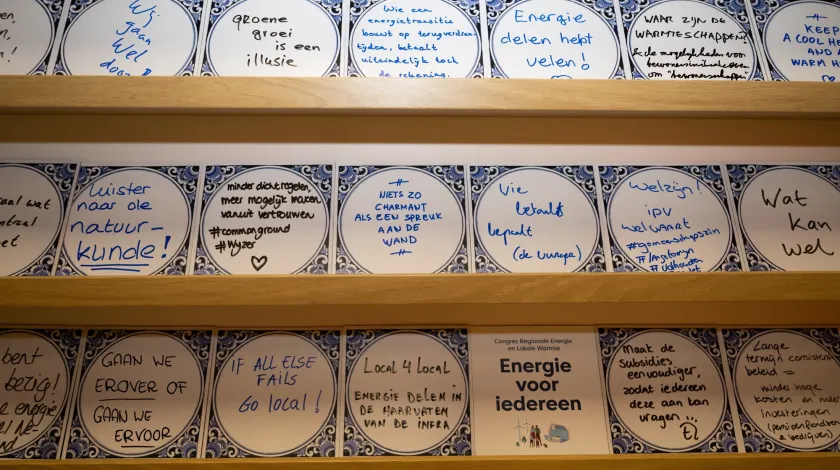 Wij
gaan
wel
door
groene
groei
is een
illusie
Wie een
energietransitie
bouwt op terugverdien-
tijden, betaalt
uiteindelijk toch
de rekening.
Energie
delen hebt
velen!
WAAR ZIJN DE
WARMTESCHAPPEN?
& de mogelijkheden voor
bewonersinitiatieven
om "bewonerschappe"
KEEP
A COOL HE
AND A
WARM H
aal wat
ntraal
oet
Luister
naar de
natuur-
kunde!
minder dichtregelen,
meer mogelijk maken
vanuit vertrouwen
#commonground
#Wyzer
NIETS ZO
CHARMANT
ALS EEN SPREUK
AAN DE
WAND
Wie
betaalt
bepaalt
(de Europa)
Welzijn!
ipv
welvaart
#gemeenschapszin
Wat
kan
wel
bent
bezig!
energie
GAAN WE
EROVER OF
GAAN WE
ERVOOR
IF ALL ELSE
FAILS
GO local!
LOCAL 4 LOCAL
ENERGIE DELEN IN
DE HAARVATEN
VAN DE INFRA
Congres Regionale Energie
en Lokale Warmte
Energie
voor
iedereen
Maak de
subsidies
eenvoudiger,
zodat iedereen
deze aan kan
vragen ...
Lange
termijn consistent
beleid =
minder hoge
kosten en meer
investeringen
(pensioenfondsen
& bedrijven)